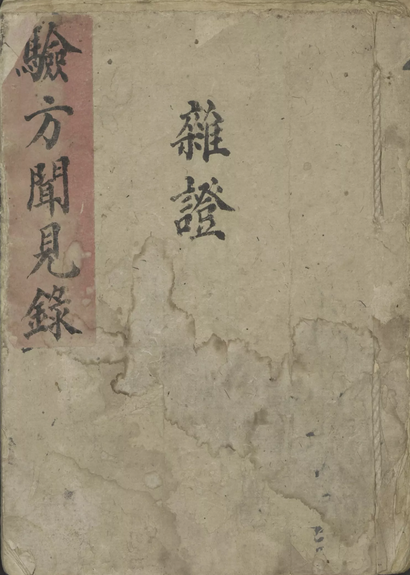 驗方聞見錄
雜證